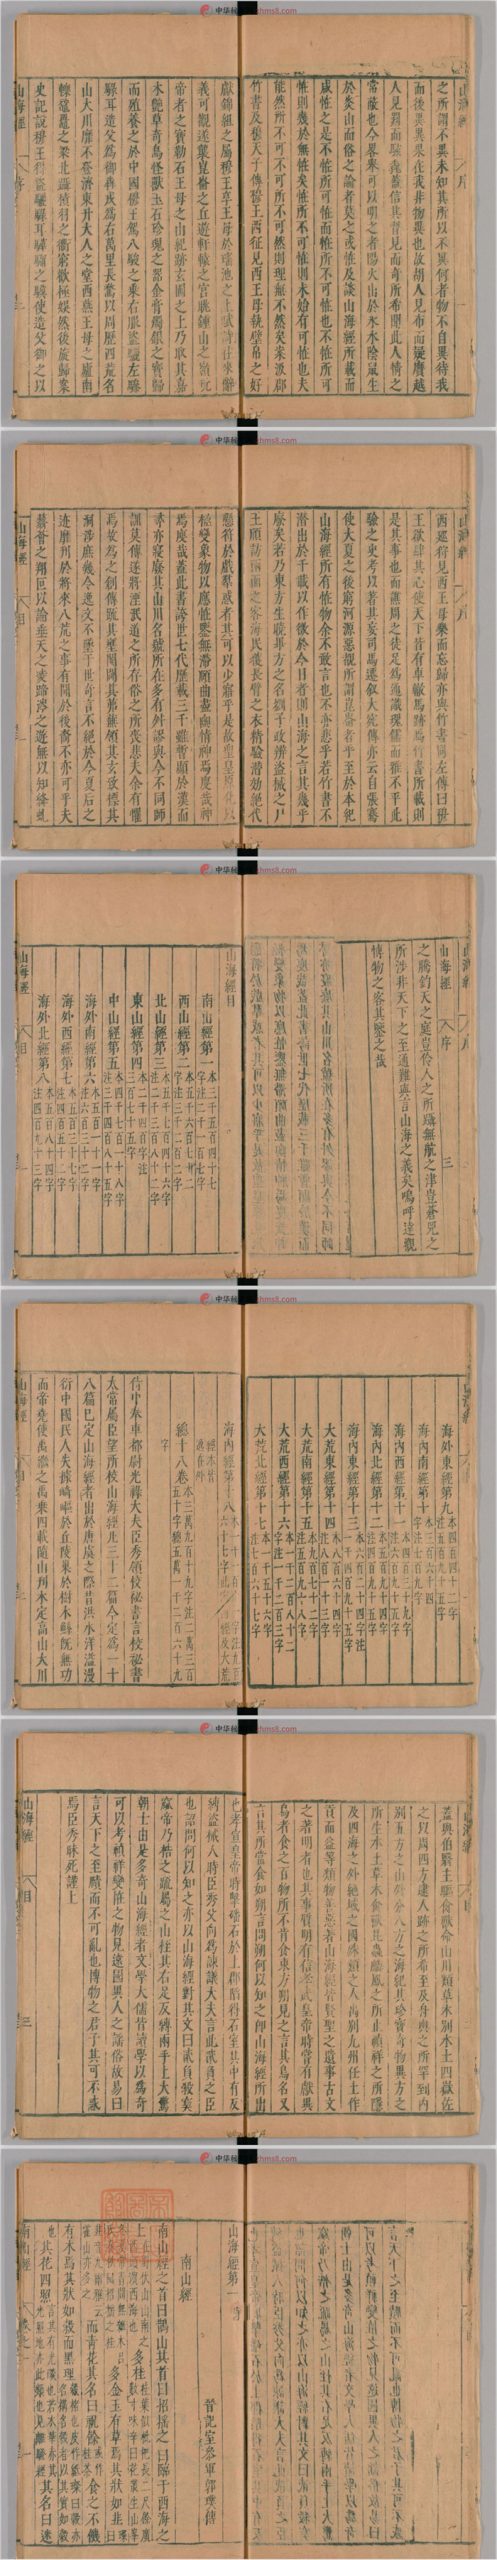 中华 hms8.com
山海經 序
之所謂不異未知其所以不異何者物不自異待我
而後異異果在我非物異也故胡人見布而疑黂越
人見罽而駭毳蓋信其習見而奇所希聞此人情之
常蔽也今略舉可以明之者陽火出於冰水陰鼠生
於炎山而俗之論者莫之或怪及談山海經所載而
咸怪之是不怪所可怪而怪所不可怪也不怪所可
怪則幾於無怪矣怪所不可怪則未始有可怪也夫
能然所不可不可所不可然則理無不然矣案汲郡
竹書及穆天子傳穆王西征見西王母執璧帛之好
獻錦組之屬穆王享王母於瑤池之上賦詩往來辭
義可觀遂襲崑崙之丘遊軒轅之宮眺鍾山之嶺玩
帝者之寶勒石王母之山紀跡玄圃之上乃取其嘉
木艷草奇鳥怪獸玉石珍瑰之器金膏燭銀之寶歸
而殖養之於中國穆王駕八駿之乘右服盜驪左驂
騄耳造父為御犇戎為右萬里長騖以周歷四荒名
山大川靡不登濟東升大人之堂西燕王母之廬南
轢黿鼉之梁北躡積羽之衢窮歡極娛然後旋歸案
史記說穆王得盜驪騄耳驊騮之驥使造父御之以
山海經 序
西巡狩見西王母樂而忘歸亦與竹書同左傳曰穆
王欲肆其心使天下皆有車轍馬跡焉竹書所載則
是其事也而譙周之徒足為通識瑰儒而雅不平此
驗之史考以著其妄司馬遷敘大宛傳亦云自張騫
使大夏之後窮河源惡覩所謂崑崙者乎至於本紀
山海經所有怪物余不敢言也不亦悲乎若竹書不
潛出於千載以作徵於今日者則山海之言其幾乎
廢矣若乃東方生曉畢方之名劉子政辨盜械之尸
王頎訪兩面之客海民獲長臂之衣精驗潛效絕代
懸符於戲羣惑者其可以少寤乎是故聖皇原化以
極變象物以應怪鑒無滯賾曲盡幽情神焉廋哉神
焉廋哉蓋此書跨世七代歷載三千雖暫顯於漢而
尋亦寢廢其山川名號所在多有舛謬與今不同師
訓莫傳遂將湮泯道之所存俗之所喪悲夫余有懼
焉故為之創傳疏其壅閡闢其茀蕪領其玄致標其
洞涉庶幾令逸文不墜於世奇言不絕於今夏后之
迹靡刊於將來八荒之事有聞於後裔不亦可乎夫
蘙薈之翔叵以論垂天之凌蹄涔之遊無以知絳虬
山海經 目
山海經 序 三
之騰鈞天之庭豈伶人之所躡無航之津豈蒼兕之
所涉非天下之至通難與言山海之義矣嗚呼達觀
博物之客其鑒之哉
山海經目
南山經第一
西山經第二
北山經第三
東山經第四
中山經第五
海外南經第六
海外西經第七
海外北經第八
山海經 目
海外東經第九
海內南經第十
海內西經第十一
海內北經第十二
海內東經第十三
大荒東經第十四
大荒南經第十五
大荒西經第十六
大荒北經第十七
海內經第十八
總十八卷
侍中奉車都尉光祿大夫臣秀領校祕書言校祕書
太常屬臣望所校山海經凡三十二篇今定為一十
八篇已定山海經者出於唐虞之際昔洪水洋溢漫
衍中國民人失據崎嶇於丘陵巢於樹木鯀既無功
而帝堯使禹繼之禹乘四載隨山刊木定高山大川
山海經 目
蓋與伯翳主驅禽獸命山川類草木別水土四嶽佐
之以周四方逮人跡之所希至及舟輿之所罕到內
別五方之山外分八方之海紀其珍寶奇物異方之
所生水土草木禽獸昆蟲麟鳳之所止禎祥之所隱
及四海之外絕域之國殊類之人禹別九州任土作
貢而益等類物善惡著山海經皆賢聖之遺事古文
之著明者也其事質明有信孝武皇帝時嘗有獻異
鳥者食之百物所不肯食東方朔見之言其鳥名又
言其所當食如朔言問朔何以知之卽山海經所出
也孝宣皇帝時擊磻石於上郡陷得石室其中有反
縛盜械人時臣秀父向為諫議大夫言此貳負之臣
也詔問何以知之亦以山海經對其文曰貳負殺窫
窳帝乃梏之疏屬之山桎其右足反縛兩手上大驚
朝士由是多奇山海經者文學大儒皆讀學以為奇
可以考禎祥變怪之物見遠國異人之謠俗故易曰
言天下之至賾而不可亂也博物之君子其可不惑
焉臣秀昧死謹上
山海經 目 三
山海經第一
晉記室參軍郭璞傳
南山經
南山經之首曰鵲山其首曰招搖之山臨于西海之
上 多桂
多金玉有草焉其狀如韭
而青花其名曰祝餘 食之不饑
有木焉其狀如穀而黑理
其花四照 其名曰迷
南山經 卷之一 一